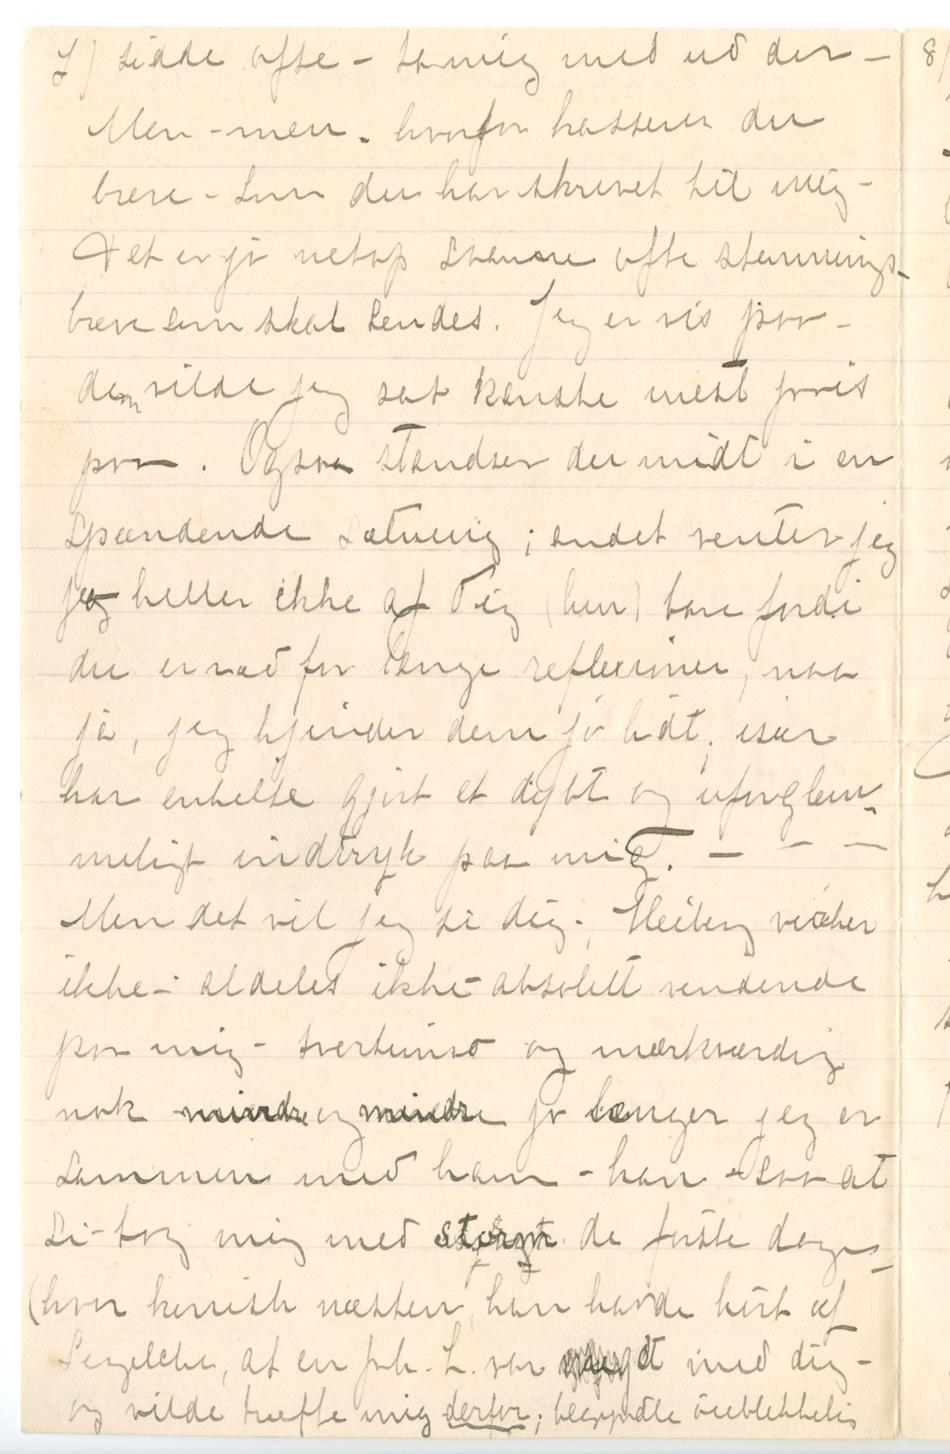 7) sidde ofte – ta mig med ud der –
Men – men – hvorfor kasserer du
breve – som du har skrevet til mig –
Det er jo netop saanne ofte stemnings-
breve som skal sendes. Jeg er vis paa –
dem vilde jeg sat kanske mest pris
paa. Ogsaa standser du midt i en
spændende sætning; andet venter jeg
jo heller ikke af dig (hun) bare fordi
du er ræd for lange reflexioner, naa
ja, jeg kjender dem jo lidt, især
har enkelte gjort et dybt og uforglem-
meligt indtryk paa mig. – – –
Men det vil jeg si dig – Heiberg virker
ikke – aldeles ikke absolutt
paa mig – tvertimod og mærkværdig
nok mindre og mindre jo længer jeg er
sammen med ham – han – saa at
si – tog mig med storm de første dage –
(hvor komisk næsten, han havde hørt af
at en frk. L. var med dig –
og vilde træffe mig derfor; øieblikkelig